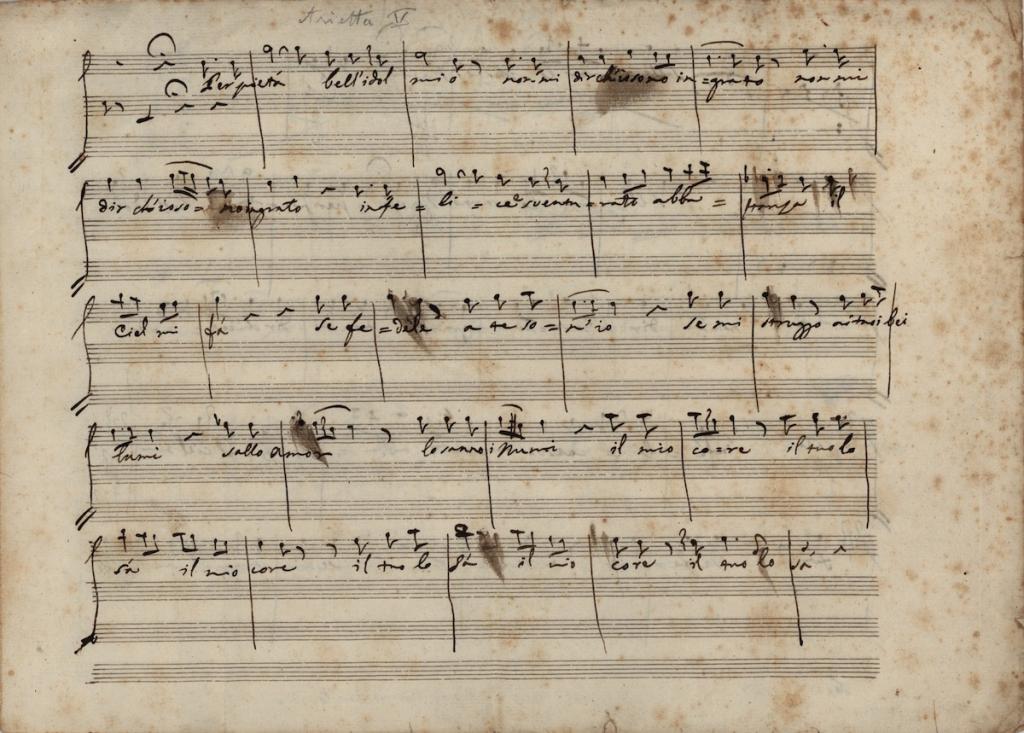 Arietta V
Per pietá bell'idol mio non mi dir ch'io sono in=grato non mi
dir ch'io so=no ingrato infe=li=ce e sventu=rato abba=stanza il
Ciel mi fá se fe=dele a te so=n'io se mi struggo ai tuoi bei
lumi sallo amor lo sanno i Numi il mio co=re il tuo lo
sá il mio core il tuo lo sá il mio core il tuo lo sá